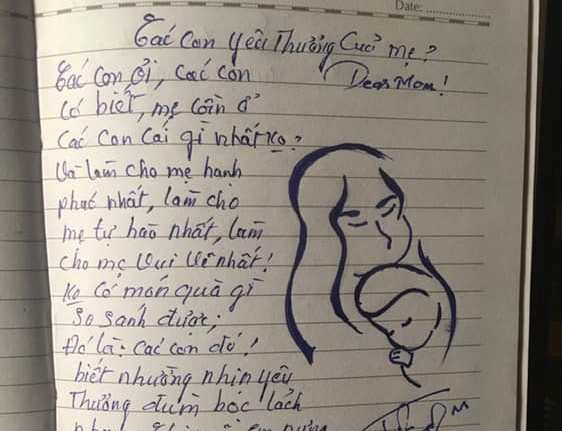 Date:
Các con yêu Thưởng Của mẹ?
Các con ơi, các con
Dear Mom!
Có biết, mẹ cần ở
Các con cái gì nhất ko?
Và làm cho mẹ hạnh
phúc nhất, làm cho
mẹ tự hào nhất, làm
cho mẹ vui vẽ nhất!
Ko có món quà gì
so sánh được;
Đó là: các con đó!
biết nhường nhịn yêu
Thưởng đùm bọc lách